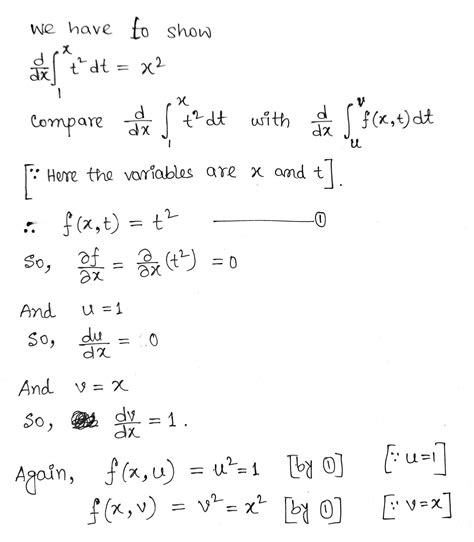 we have to show
d/dx ∫₁ˣ t² dt = x²
Compare d/dx ∫₁ˣ t² dt with d/dx ∫ᵤᵛ f(x,t) dt
[∵ Here the variables are x and t].
∴ f(x,t) = t² ——— ①
So, ∂f/∂x = ∂/∂x (t²) = 0
And u = 1
So, du/dx = 0
And v = x
So, dv/dx = 1.
Again, f(x,u) = u² = 1 [by ①] [∵ u=1]
f(x,v) = v² = x² [by ①] [∵ v=x]